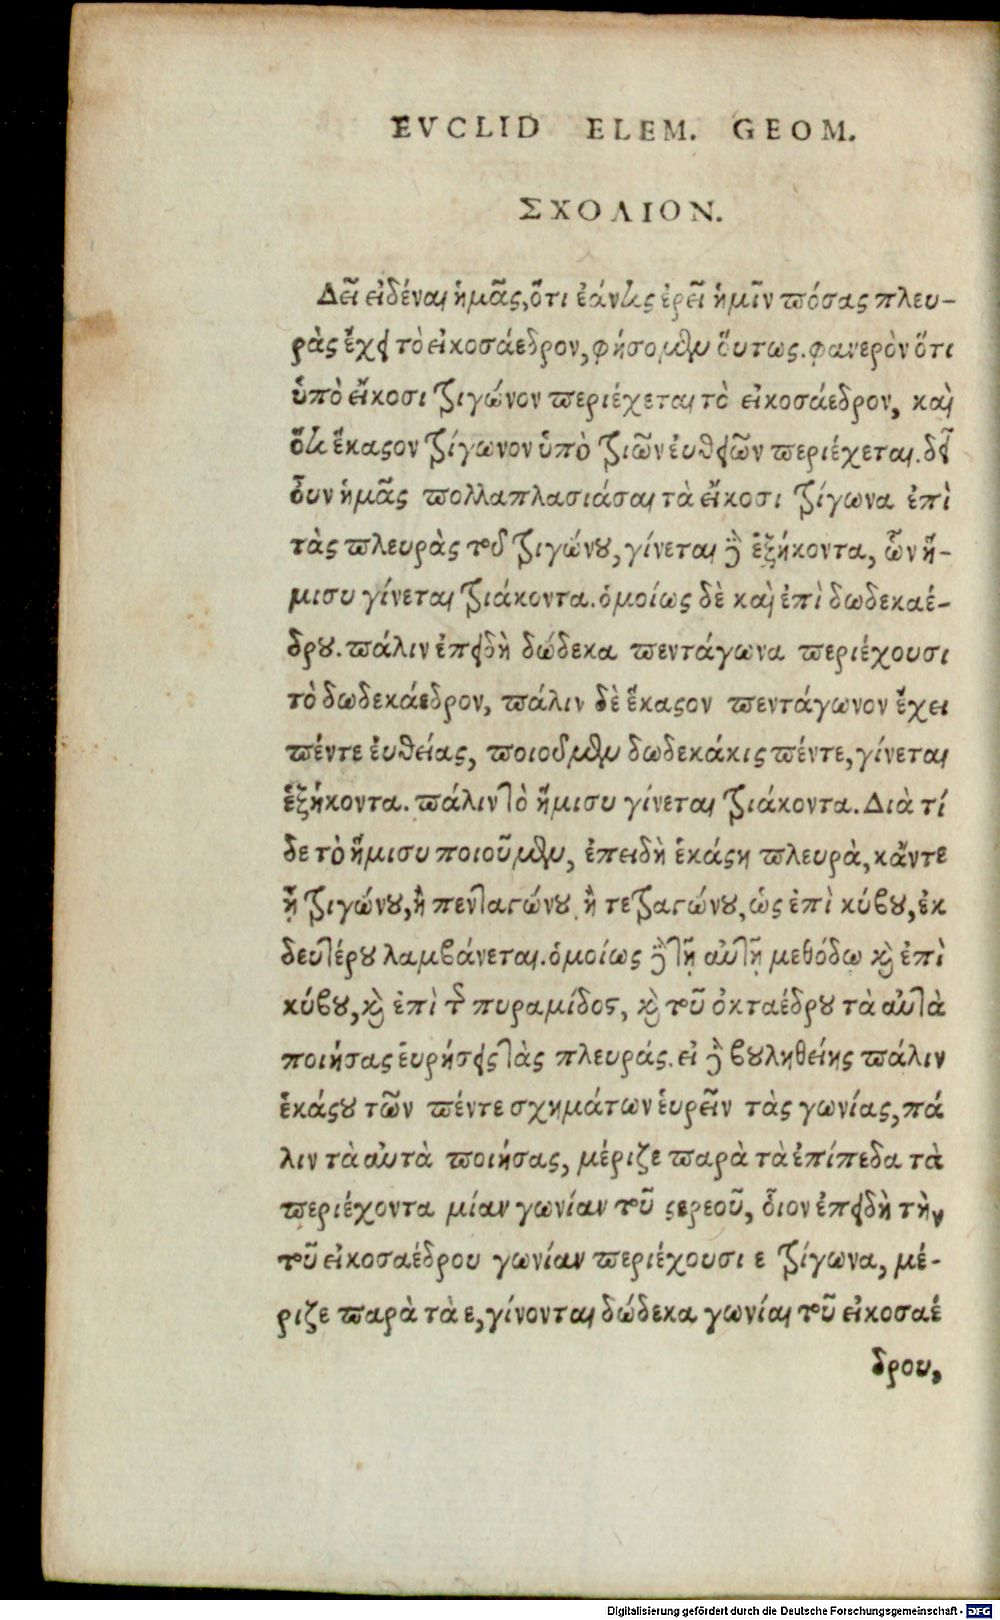 EVCLID ELEM. GEOM.
ΣΧΟΛΙΟΝ.
Δεῖ εἰδέναι ἡμᾶς, ὅτι ἐάν τις ἐρεῖ ἡμῖν πόσας πλευ-
ρὰς ἔχει τὸ εἰκοσάεδρον, φήσομεν ὅυτως. φανερὸν ὅτι
ὑπὸ εἴκοσι τριγώνον περιέχεται τὸ εἰκοσάεδρον, καὶ
ὅτι ἕκαστον τρίγωνον ὑπὸ τριῶν ἐυθειῶν περιέχεται. δεῖ
ὀυν ἡμᾶς πολλαπλασιάσαι τὰ εἴκοσι τρίγωνα ἐπὶ
τὰς πλευρὰς τοῦ τριγώνου, γίνεται δὲ ἑξήκοντα, ὧν ἥ-
μισυ γίνεται τριάκοντα. ὁμοίως δὲ καὶ ἐπὶ δωδεκαέ-
δρου. πάλιν ἐπειδὴ δώδεκα πεντάγωνα περιέχουσι
τὸ δωδεκάεδρον, πάλιν δὲ ἕκαστον πεντάγωνον ἔχει
πέντε ἐυθείας, ποιοῦμεν δωδεκάκις πέντε, γίνεται
ἑξήκοντα. πάλιν τὸ ἥμισυ γίνεται τριάκοντα. Διὰ τί
δε τὸ ἥμισυ ποιοῦμεν, ἐπειδὴ ἑκάστη πλευρὰ, κἄντε
ᾖ τριγώνου, ἢ πενταγώνου ἢ τετραγώνου, ὡς ἐπὶ κύβου, ἐκ
δευτέρου λαμβάνεται. ὁμοίως δὲ τῇ αὐτῇ μεθόδω καὶ ἐπὶ
κύβου, καὶ ἐπὶ τῆς πυραμίδος, καὶ τοῦ ὀκταέδρου τὰ αὐτὰ
ποιήσας ἑυρήσεις τὰς πλευράς. εἰ δὲ βουληθείης πάλιν
ἑκάστου τῶν πέντε σχημάτων ἑυρεῖν τὰς γωνίας, πά
λιν τὰ αὐτὰ ποιήσας, μέριζε παρὰ τὰ ἐπίπεδα τὰ
περιέχοντα μίαν γωνίαν τοῦ στερεοῦ, ὅιον ἐπειδὴ τὴν
τοῦ εἰκοσαέδρου γωνίαν περιέχουσι ε τρίγωνα, μέ-
ριζε παρὰ τὰ ε, γίνονται δώδεκα γωνίαι τοῦ εἰκοσαέ
δρου,
Digitalisierung gefördert durch die Deutsche Forschungsgemeinschaft - DFG